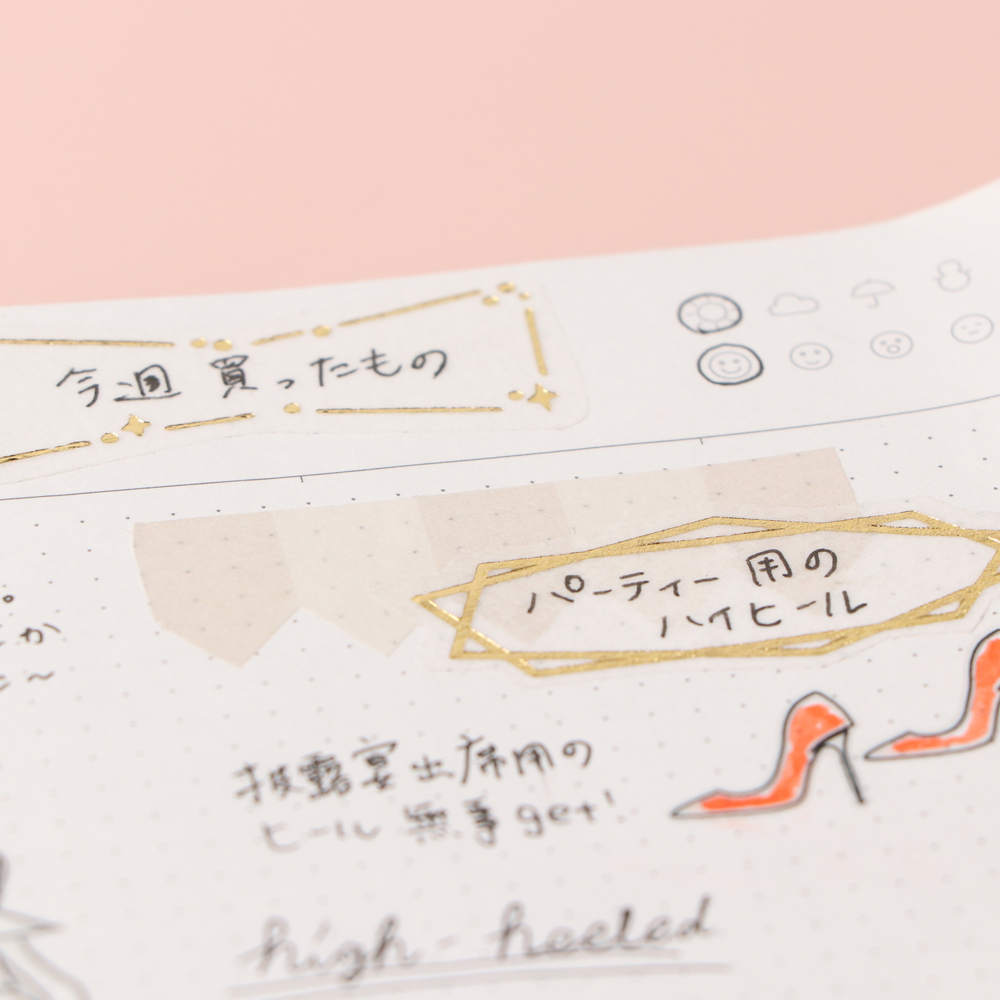 今週 買ったもの
パーティー用の
ハイヒール
か
披露宴出席用の
ヒール 無事get!
high-heeled